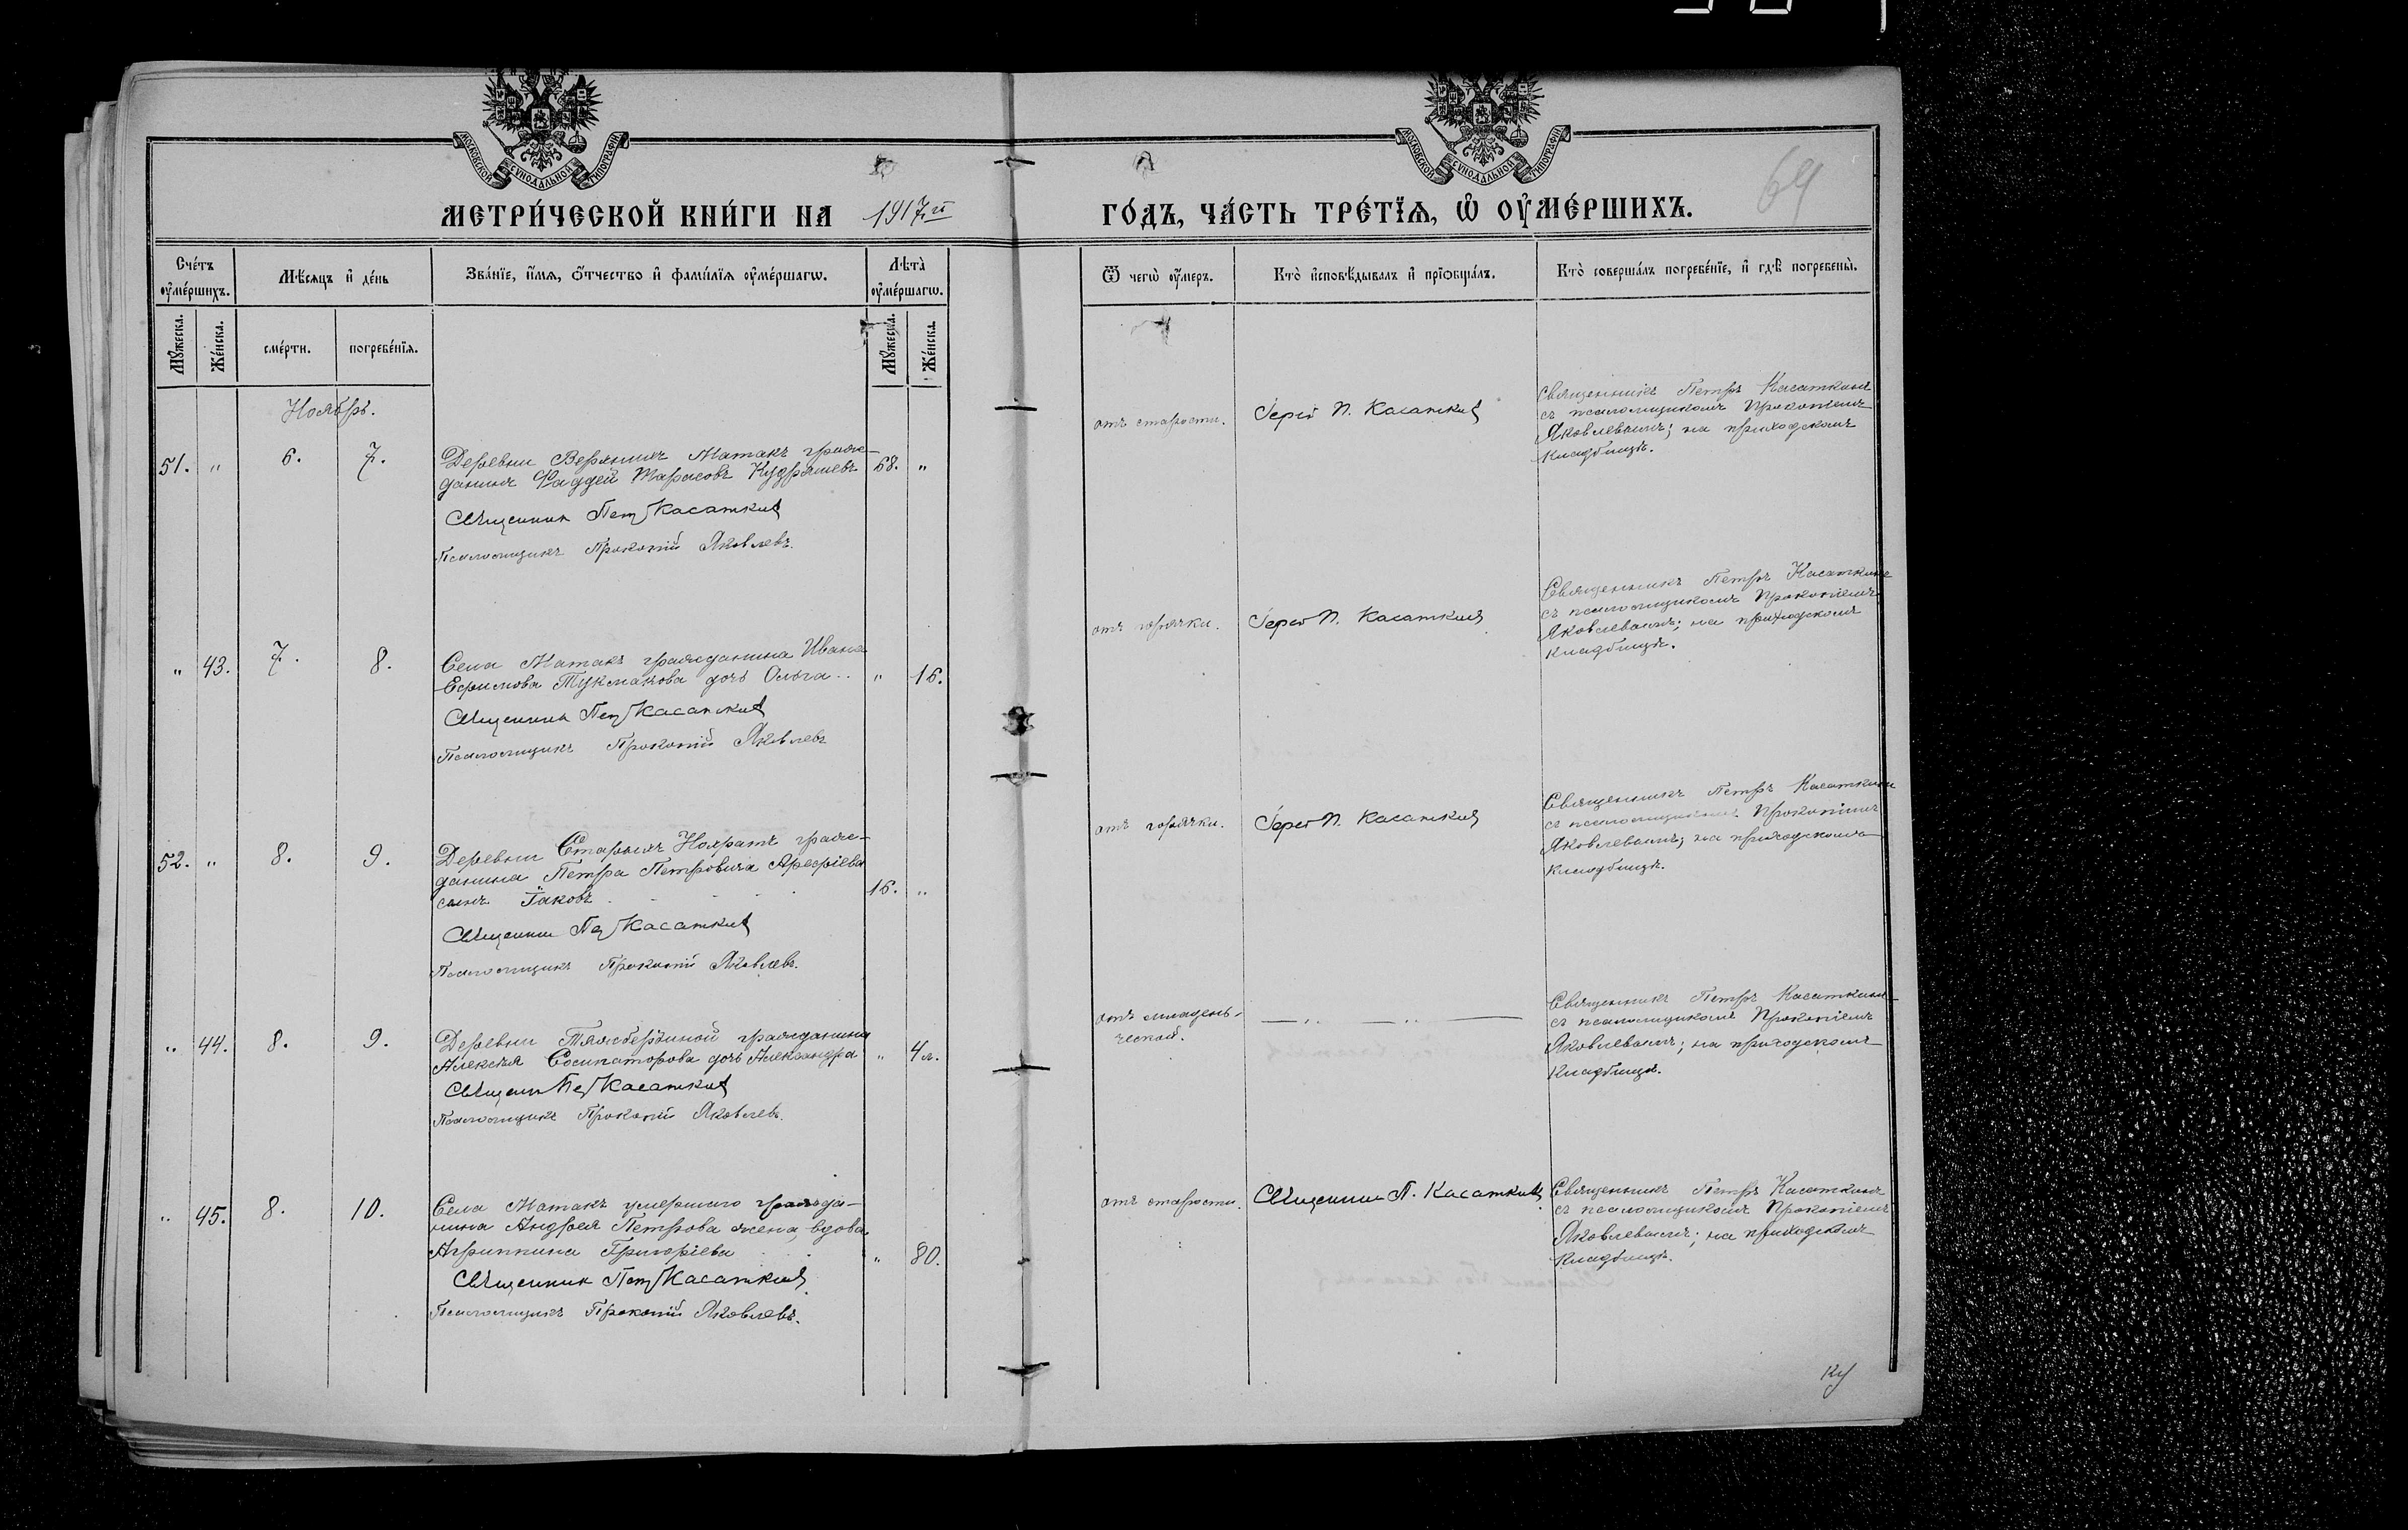 МОСКОВСКОЙ СѴНОДАЛЬНОЙ ТИПОГРАФІИ
МОСКОВСКОЙ СѴНОДАЛЬНОЙ ТИПОГРАФІИ
69
МЕТРИ́ЧЕСКОЙ КНИ́ГИ НА 1917й ГО́ДЪ, ЧА́СТЬ ТРЕ́ТЇѦ, Ѡ ОУ҆МЕ́РШИХЪ.
Сче́тъ оу҆ме́ршихъ.
Мѣ́сѧцъ и҆ де́нь
Зва́нїе, и҆́мѧ, ѻ҆́тчество и҆ фами́лїѧ оу҆ме́ршагѡ.
Лѣта̀ оу҆ме́ршагѡ.
Ѿ чегѡ̀ оу҆́меръ.
Кто̀ и҆сповѣ́дывалъ и҆ прїѡбща́лъ.
Кто̀ соверша́лъ погребе́нїе, и҆ гдѣ̀ погребены̀.
Мꙋ́жеска. Же́нска. сме́рти. погребе́нїѧ. Мꙋ́жеска. Же́нска.
Ноябрь.
51. " 6. 7. Деревни Верхнихъ Матакъ граж-
данинъ Фаддей Тарасовъ Кудряшевъ 68. "
Священник Петр Касаткин
Псаломщикъ Прокопій Яковлевъ.
отъ старости. Іерей П. Касаткин
Священникъ Петръ Касаткинъ
съ псаломщикомъ Прокопіемъ
Яковлевымъ; на приходскомъ
кладбищѣ.
" 43. 7. 8. Села Матакъ гражданина Ивана
Ефимова Тукмакова дочь Ольга .. " 16.
Священник Петр Касаткин
Псаломщикъ Прокопій Яковлевъ
отъ горячки. Іерей П. Касаткин
Священникъ Петръ Касаткинъ
съ псаломщикомъ Прокопіемъ
Яковлевымъ; на приходскомъ
кладбищѣ.
52. " 8. 9. Деревни Старыхъ Ноxратъ граж-
данина Петра Петровича Арефіева
сынъ Іаковъ 16. "
Священник Петр Касаткин
Псаломщикъ Прокопій Яковлевъ.
отъ горячки. Іерей П. Касаткин
Священникъ Петръ Касаткинъ
съ псаломщикомъ Прокопіемъ
Яковлевымъ; на приходскомъ
кладбищѣ.
" 44. 8. 9. Деревни Тяжбердиной гражданина
Алексѣя Сосипаторова дочь Александра " 4 м.
Священник Петр Касаткин
Псаломщикъ Прокопій Яковлевъ.
отъ младень-
ческой. — " — " —
Священникъ Петръ Касаткинъ
съ псаломщикомъ Прокопіемъ
Яковлевымъ; на приходскомъ
кладбищѣ.
" 45. 8. 10. Села Матакъ умершаго гражда-
нина Андрея Петрова жена, вдова
Агриппина Григоріева " 80.
Священник Петр Касаткин
Псаломщикъ Прокопій Яковлевъ.
отъ старости. Священник П. Касаткин
Священникъ Петръ Касаткинъ
съ псаломщикомъ Прокопіемъ
Яковлевымъ; на приходскомъ
кладбищѣ.